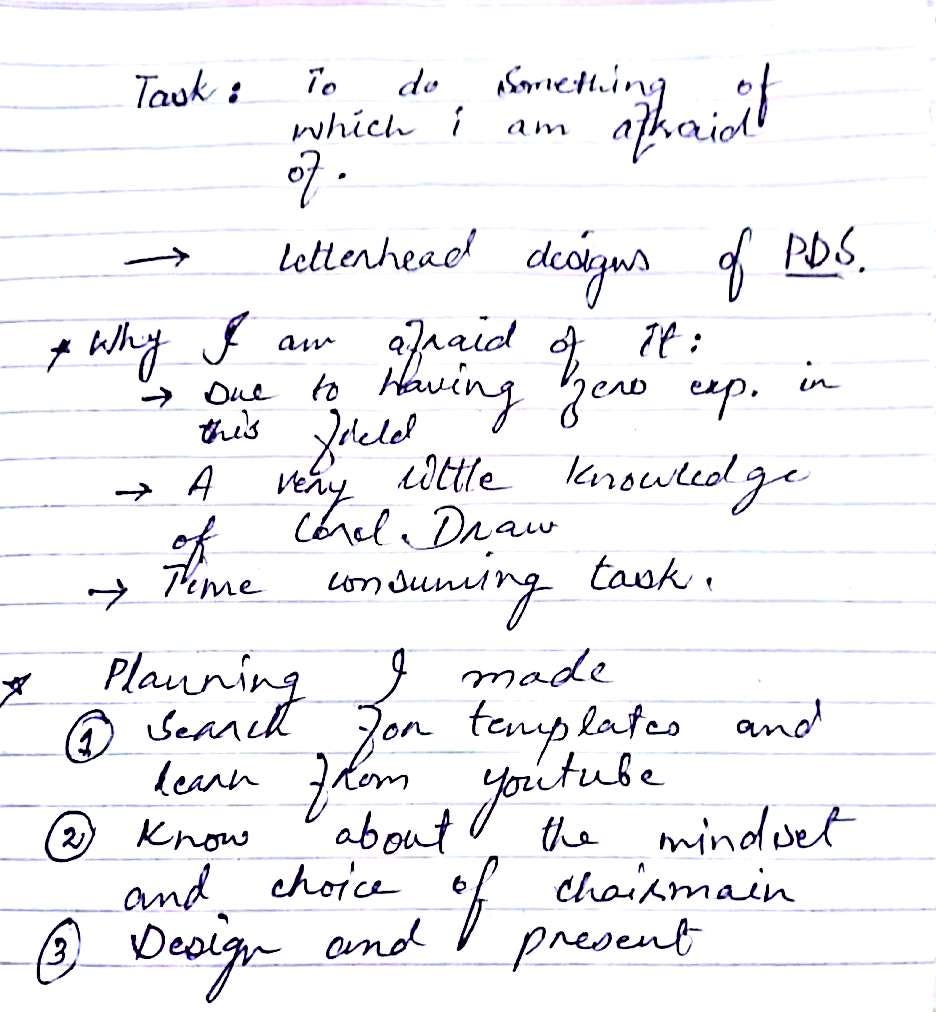 Task : To do something of
which i am afraid
of.
→ letterhead designs of PDS.
* Why I am afraid of It :
→ Due to having zero exp. in
this field
→ A very little knowledge
of Corel Draw
→ Time consuming task.
* Planning I made
① Search for templates and
learn from youtube
② Know about the mindset
and choice of chairmain
③ Design and present